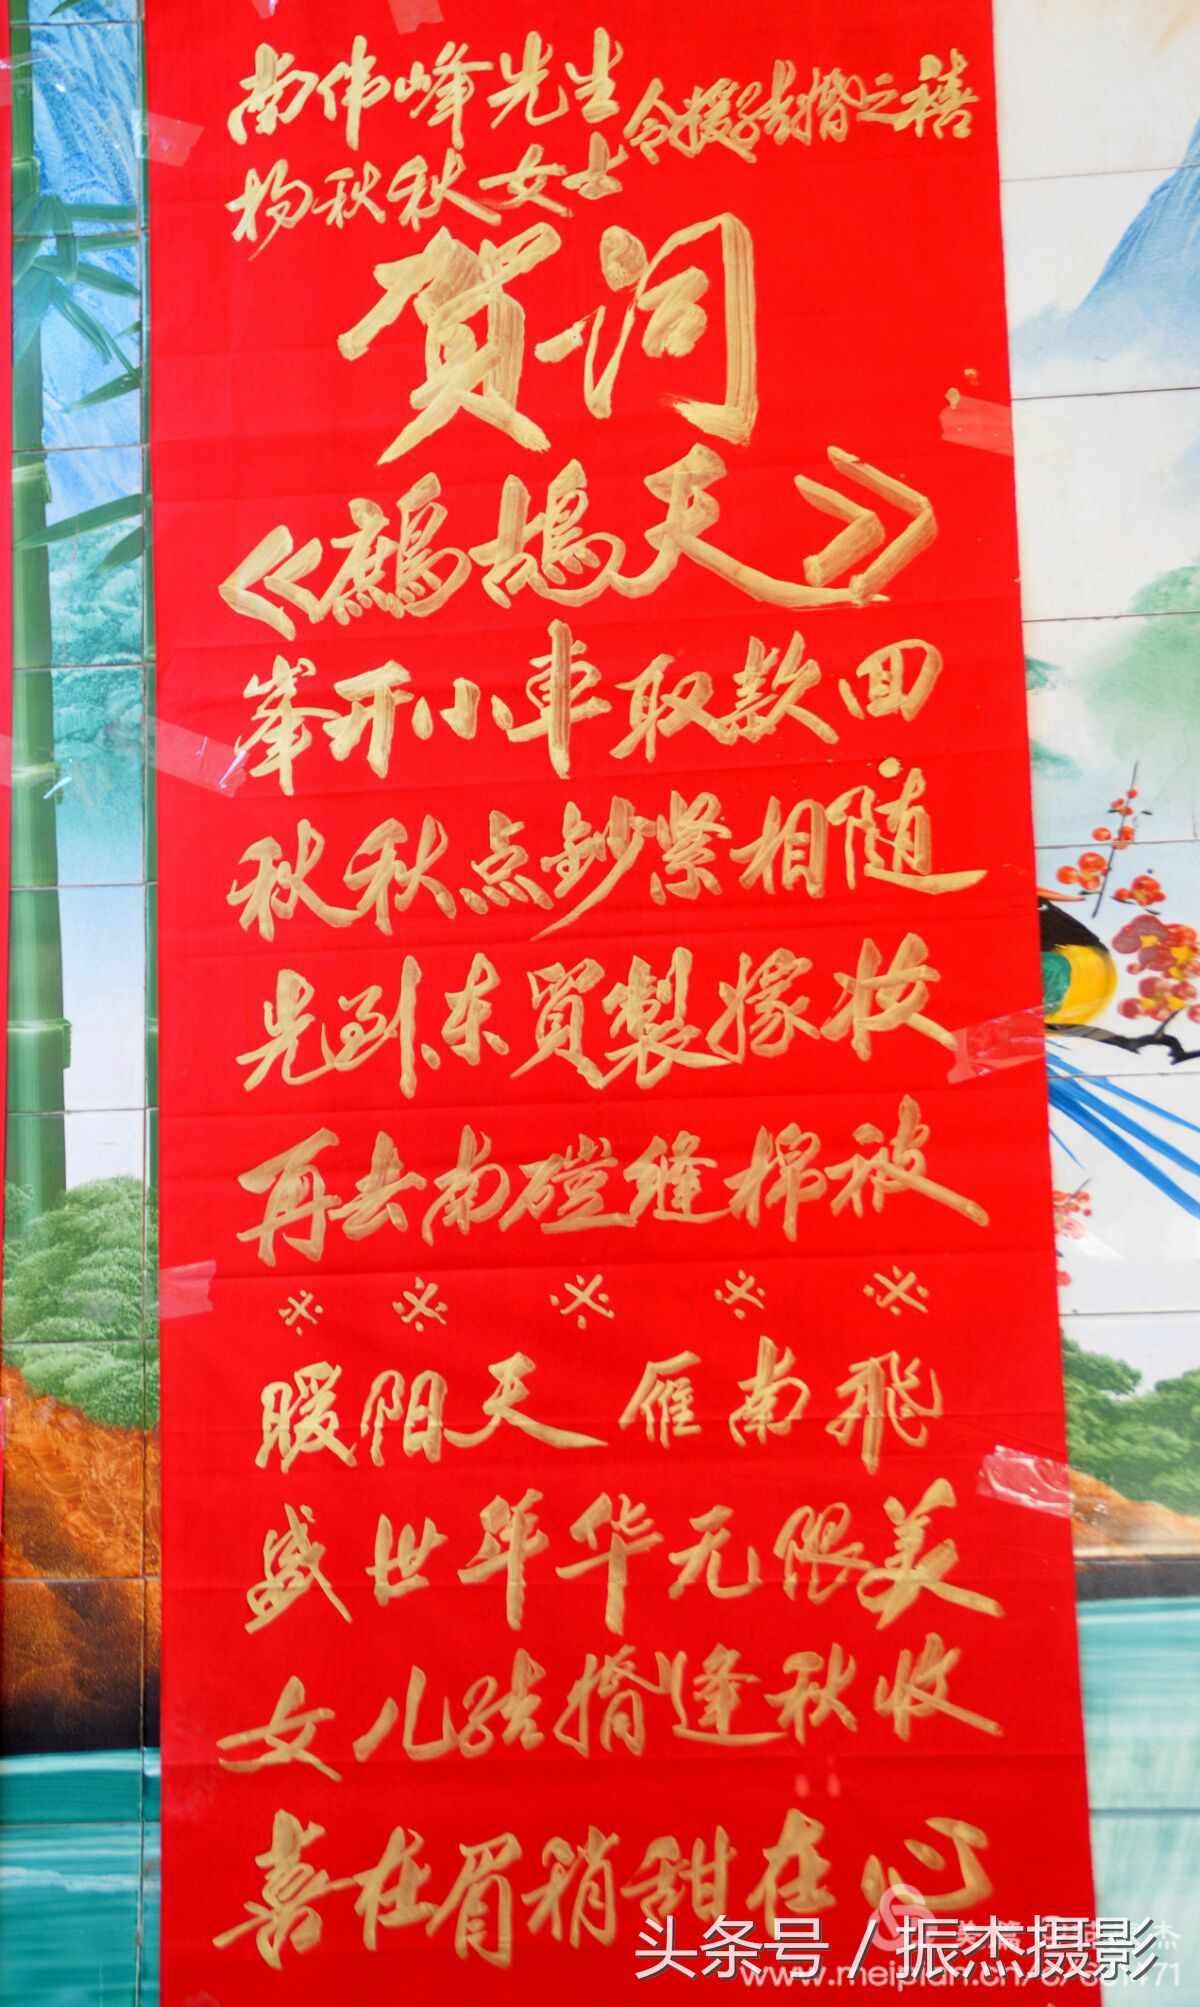 南伟峰先生
杨秋秋女士
令媛结婚之禧
賀词
《鹧鸪天》
峯开小車取款回
秋秋点鈔紧相随
先到东贸製嫁妆
再去南礠缝棉被
※ ※ ※ ※ ※
暖阳天 雁南飛
盛世年华无限美
女儿结婚逢秋收
喜在眉稍甜在心
头条号 / 振杰摄影